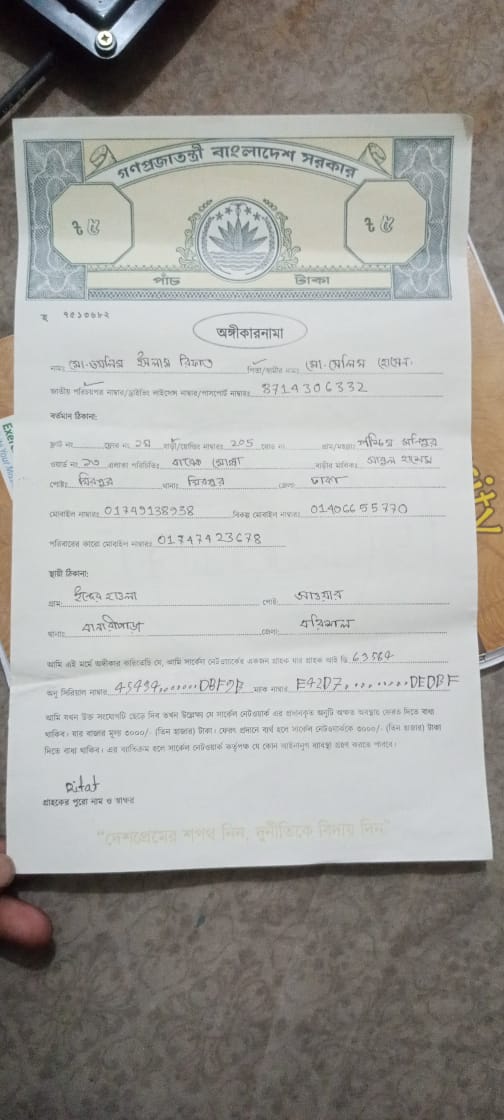 গণপ্রজাতন্ত্রী বাংলাদেশ সরকার
৳ ৫ ৳ ৫
পাঁচ টাকা
অঙ্গীকারনামা
নামঃ মো. ইসলাম রিফাত পিতা/স্বামীর নামঃ মো. সেলিম হোসেন
জাতীয় পরিচয়পত্র নাম্বার/ড্রাইভিং লাইসেন্স নাম্বার/পাসপোর্ট নাম্বারঃ 8714306332
বর্তমান ঠিকানা:
ফ্ল্যাট নং ফ্লোর নং বাড়ী/হোল্ডিং নাম্বারঃ 205 রোড নং গ্রাম/মহল্লাঃ পশ্চিম মনিপুর
ওয়ার্ড নং ১৩ এলাকা পরিচিতিঃ মোল্লা বাড়ীর মালিকঃ হাসেম
পোষ্টঃ মিরপুর থানাঃ মিরপুর জেলাঃ ঢাকা
মোবাইল নাম্বারঃ 01749138938 বিকল্প মোবাইল নাম্বারঃ 01406655770
পরিবারের কারো মোবাইল নাম্বারঃ 01747423678
স্থায়ী ঠিকানা:
গ্রামঃ পোষ্টঃ
থানাঃ বানারীপাড়া জেলাঃ বরিশাল
আমি এই মর্মে অঙ্গীকার করিতেছি যে, আমি সার্কেল নেটওয়ার্কের একজন গ্রাহক যার গ্রাহক আই ডি 63564
অনু সিরিয়াল নাম্বার 45494.......DBF9B ম্যাক নাম্বার E42D7.........DEDBF
আমি যখন উক্ত সংযোগটি ছেড়ে দিব তখন উল্লেখ্য যে সার্কেল নেটওয়ার্ক এর প্রদানকৃত অনুটি অক্ষত অবস্থায় ফেরত দিতে বাধ্য
থাকিব। যার বাজার মূল্য ৩০০০/- (তিন হাজার) টাকা। ফেরৎ প্রদানে ব্যর্থ হলে সার্কেল নেটওয়ার্ককে ৩০০০/- (তিন হাজার) টাকা
দিতে বাধ্য থাকিব। এর ব্যতিক্রম হলে সার্কেল নেটওয়ার্ক কর্তৃপক্ষ যে কোন আইনানুগ ব্যবস্থা গ্রহণ করতে পারবে।
Rifat
গ্রাহকের পুরো নাম ও স্বাক্ষর
"দেশপ্রেমের শপথ নিন, দুর্নীতিকে বিদায় দিন"